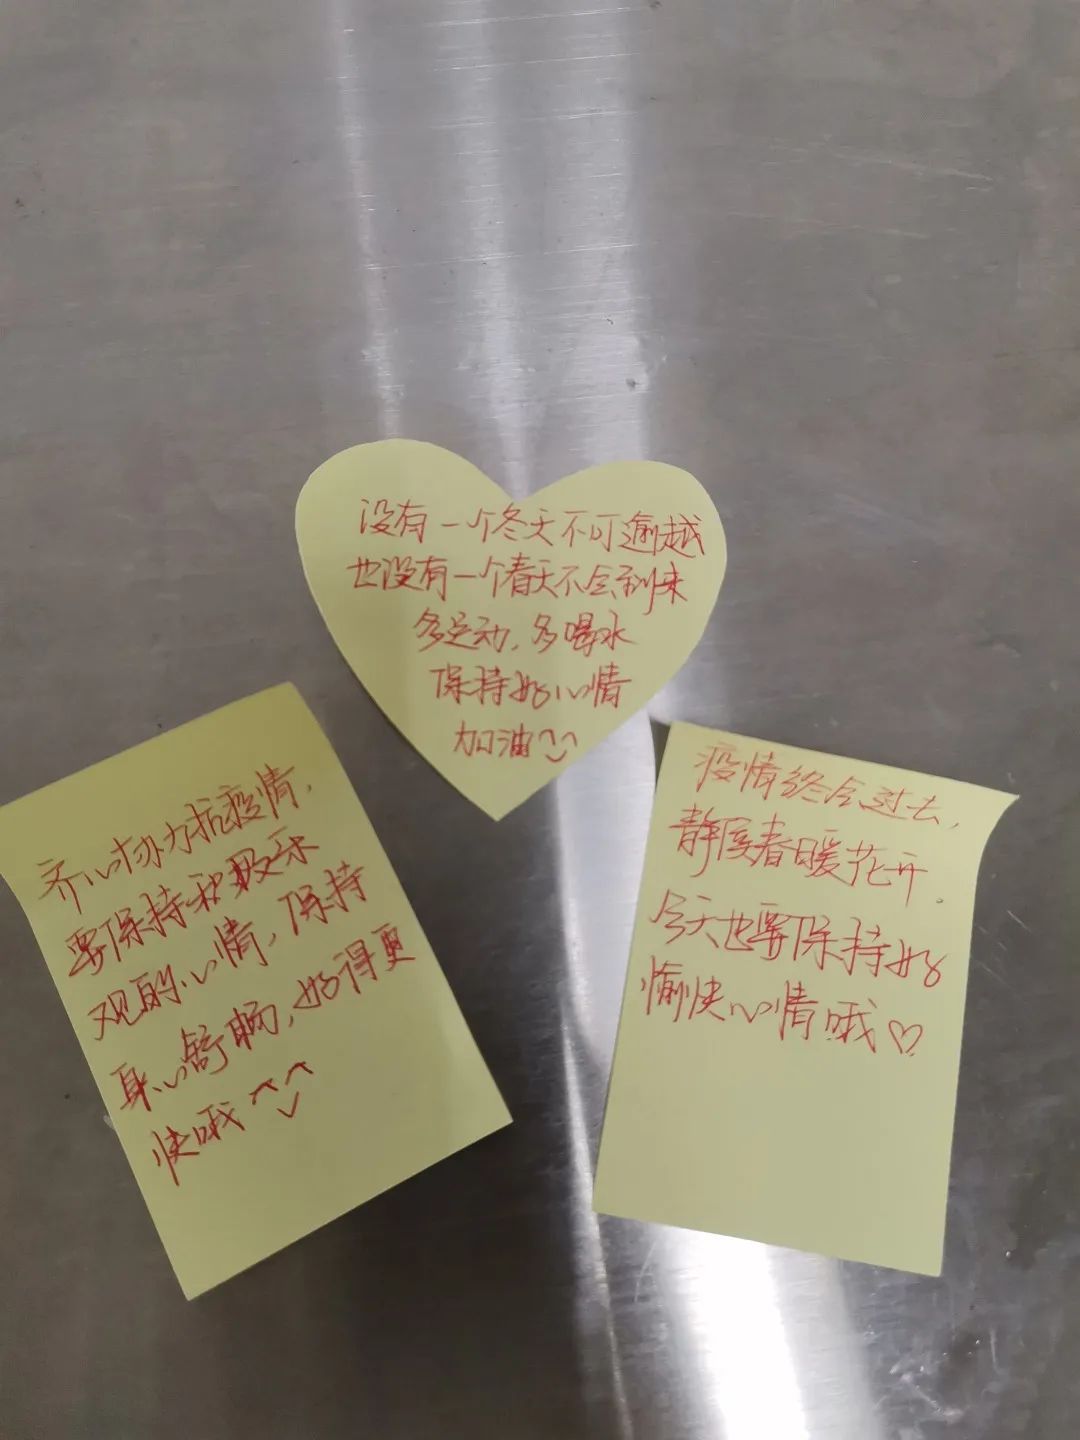 没有一个冬天不可逾越
也没有一个春天不会到来
多运动,多喝水
保持好心情
加油^‿^
齐心协力抗疫情,
要保持积极乐
观的心情,保持
身心舒畅,好得更
快哦^‿^
疫情终会过去,
静候春暖花开.
今天也要保持好
愉快心情哦♡